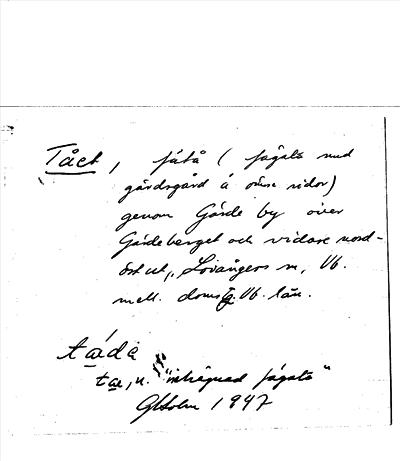 Tået, fåtå (fägata med
gärdsgård å ömse sidor)
genom Gärde by över
Gärdeberget och vidare nord-
öst ut, Lövångers sn, Vb.
mell. doms. Vb. län.
tǽda
tæ, n. "inhägnad fägata"
GHolm 1947